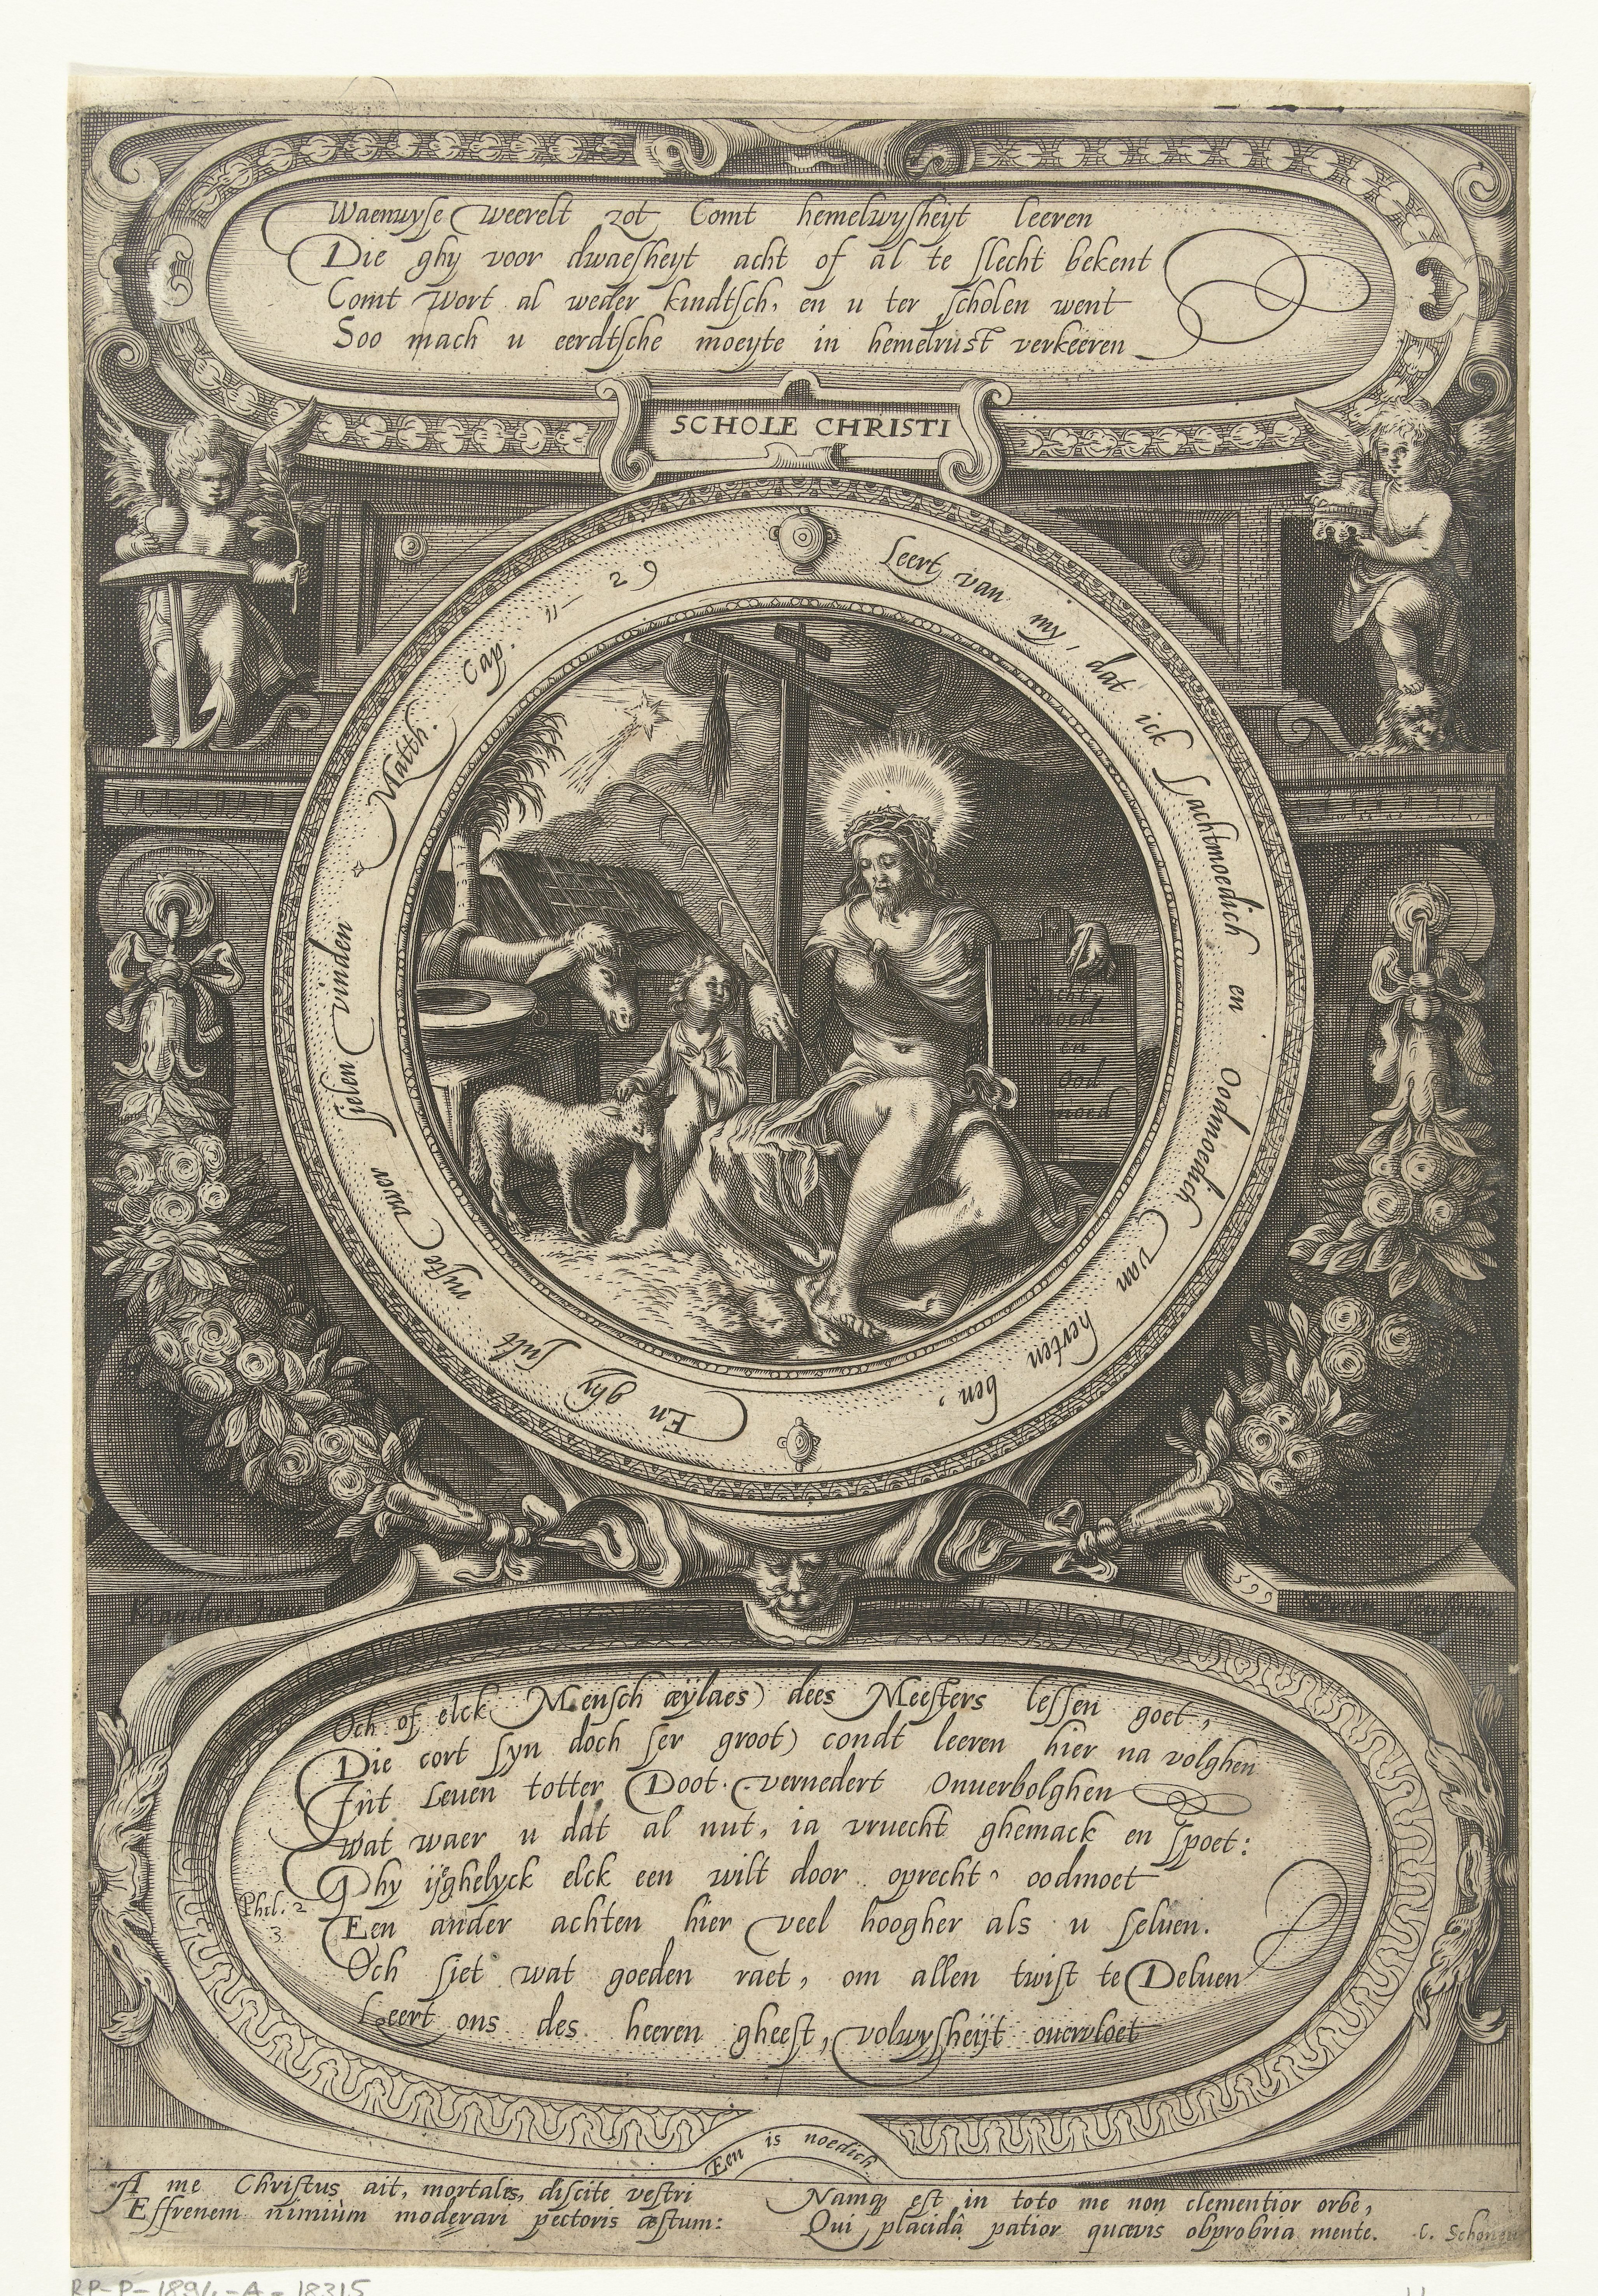 Waenwyse weerelt zot Comt hemelwysheyt leeren
Die ghy voor dwaesheyt acht of al te slecht bekent
Comt wort al weder kindtsch, en u ter scholen went
Soo mach u eerdtsche moeyte in hemelrust verkeeren
SCHOLE CHRISTI
Leert van my, dat ick sachtmoedich en Oodmoedich van herten ben, En ghy sult ruste uwer sielen vinden Matth. Cap. 11 — 29
Sacht
moed
en
ood
moed
Och of elck Mensch æylaes) dees Meesters lessen goet,
Die cort syn doch ser groot) condt leeren hier na volghen
Int Leuen totter Doot. vernedert Onuerbolghen
Wat waer u dat al nut, ia vruecht ghemack en spoet:
Ghy ijghelyck elck een wilt door oprecht oodmoet
Phil. 2
3.
Een ander achten hier veel hoogher als u seluen.
Och siet wat goeden raet, om allen twist te Deluen
Leert ons des heeren gheest, volwysheijt ouervloet
Een is noedich
A me Christus ait, mortales, discite vestri
Effrenem nimiùm moderari pectoris æstum:
Namq est in toto me non clementior orbe,
Qui placidâ patior quævis obprobria mente. C. Schonæu
RP-P-1894-A-18315